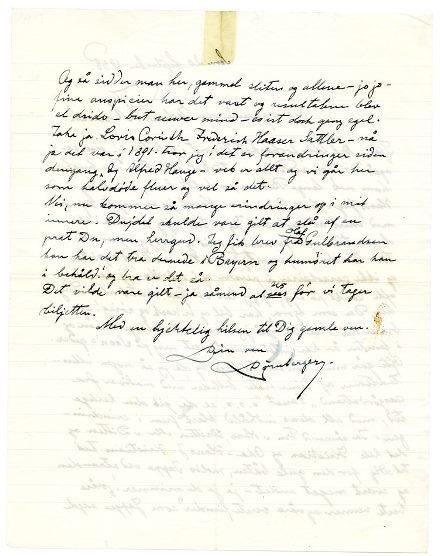 Og så sidder man her, gammel sliten og allene – jo jo
fine auspicier har det vært og resultatene blev
et drido – but never mind – es ist doch ganz egal.
Ja ja Lovis Corinth Frederich Haaser Sattler – nå
ja det var i 1891. tror jeg i det er forandringer siden
dengang. Og Alfred Hauge – vek er allt og vi går her
som halvdøde fluer og vel så det.
Nei, nu kommer så mange erindringer op i mit
indre. Du, det skulde være gilt at slå af en
prat Du, men herregud. Jeg fik brev fra Olaf Gulbrandsen
han har det bra dernede i Bayern og humøret har han
i behåld og bra er det så.
Det vilde være gilt – ja såmænd at sees før vi tager
biljetten.
Med en hjertelig hilsen til Dig gamle ven.
Din ven
Dörnberger.